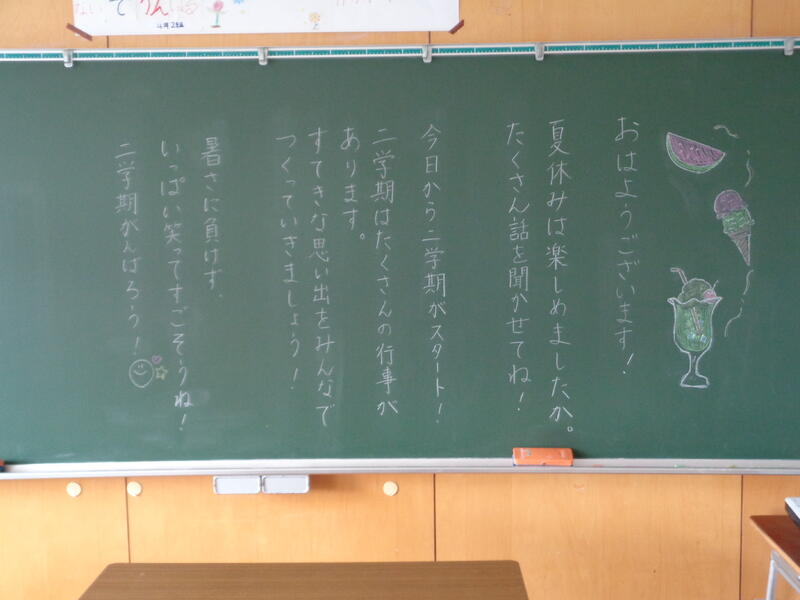 おはようございます!
夏休みは楽しめましたか。
たくさん話を聞かせてね!
今日から二学期がスタート!
二学期はたくさんの行事が
あります。
すてきな思い出をみんなで
つくっていきましょう!
暑さに負けず、
いっぱい笑ってすごそうね!
二学期がんばろう!